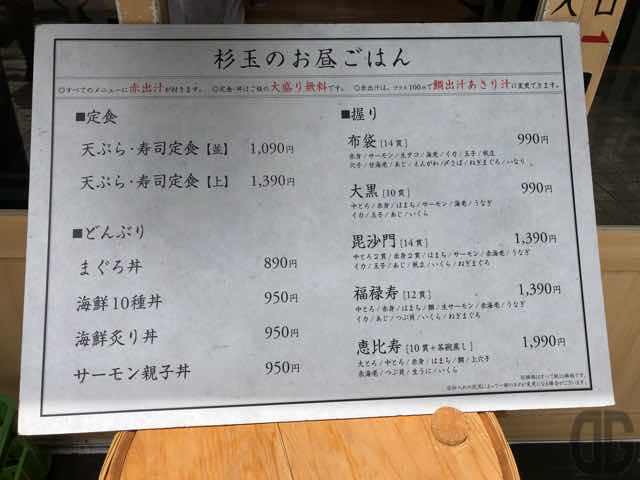 杉玉のお昼ごはん
◎すべてのメニューに赤出汁が付きます。 ◎定食・丼はご飯の大盛り無料です。 ◎赤出汁は、プラス100円で鯛出汁あさり汁に変更できます。
■定食
天ぷら・寿司定食【並】 1,090円
天ぷら・寿司定食【上】 1,390円
■どんぶり
まぐろ丼 890円
海鮮10種丼 950円
海鮮炙り丼 950円
サーモン親子丼 950円
■握り
布袋 [14貫] 990円
赤身/サーモン/生ダコ/海老/イカ/玉子/帆立
穴子/甘海老/あじ/えんがわ/がりぼう/ねぎまぐろ/いなり
大黒 [10貫] 990円
中とろ/赤身/はまち/サーモン/海老/うなぎ
イカ/玉子/あじ/いくら
毘沙門 [14貫] 1,390円
中とろ2貫/赤身2貫/はまち/サーモン/赤海老/うなぎ
イカ/玉子/あじ/帆立/いくら/ねぎまぐろ
福禄寿 [12貫] 1,390円
中とろ/赤身/はまち/鯛/生サーモン/赤海老/うなぎ
イカ/あじ/つぶ貝/いくら/ねぎまぐろ
恵比寿 [10貫+茶碗蒸し] 1,990円
大とろ/中とろ/赤身/はまち/鯛/上穴子
赤海老/つぶ貝/生うに/いくら